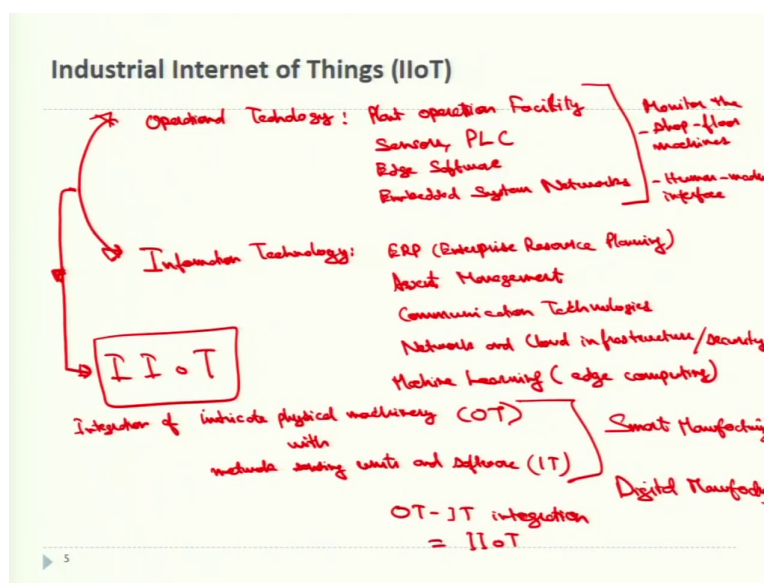 Industrial Internet of Things (IIoT)
Operational Technology: Plant operation Facility
Sensors, PLC
Edge Software
Embedded System Networks
Monitor the
- Shop-floor
machines
- Human-machi
interface
Information Technology: ERP (Enterprise Resource Planning)
Asset Management
Communication Technologies
Networks and Cloud infrastructure/security
Machine Learning (edge computing)
IIoT
Integration of intricate physical machinery (OT)
with
network sensing units and software (IT)
Smart Manufacturing
Digital Manufact
OT-IT integration
= IIoT
5